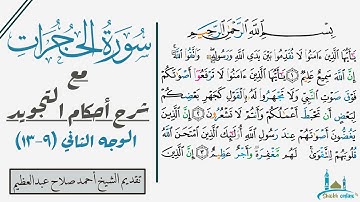 سورة الحجرات
مع
شرح أحكام التجويد
الوجه الثاني (٩-١٣)
تقديم الشيخ أحمد صلاح عبدالعظيم
بِسْمِ اللَّهِ الرَّحْمَٰنِ الرَّحِيمِ
يَٰٓأَيُّهَا الَّذِينَ ءَامَنُوا۟ لَا تُقَدِّمُوا۟ بَيْنَ يَدَيِ اللَّهِ وَرَسُولِهِۦ ۖ وَاتَّقُوا۟ اللَّهَ ۚ
إِنَّ اللَّهَ سَمِيعٌ عَلِيمٌ ١ يَٰٓأَيُّهَا الَّذِينَ ءَامَنُوا۟ لَا تَرْفَعُوٓا۟ أَصْوَٰتَكُمْ
فَوْقَ صَوْتِ النَّبِيِّ وَلَا تَجْهَرُوا۟ لَهُۥ بِالْقَوْلِ كَجَهْرِ بَعْضِكُمْ
لِبَعْضٍ أَن تَحْبَطَ أَعْمَٰلُكُمْ وَأَنتُمْ لَا تَشْعُرُونَ ٢ إِنَّ الَّذِينَ
يَغُضُّونَ أَصْوَٰتَهُمْ عِندَ رَسُولِ اللَّهِ أُو۟لَٰٓئِكَ الَّذِينَ امْتَحَنَ اللَّهُ
قُلُوبَهُمْ لِلتَّقْوَىٰ ۚ لَهُم مَّغْفِرَةٌ وَأَجْرٌ عَظِيمٌ ٣ إِنَّ الَّذِينَ
Sheikh online